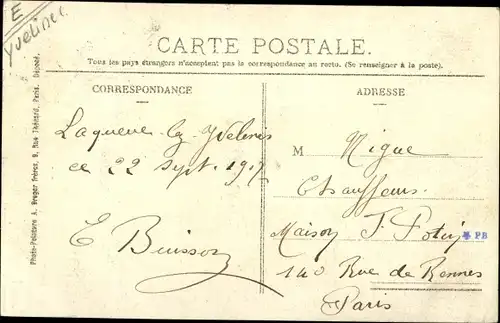 E
Yvelines
CARTE POSTALE.
Tous les pays étrangers n'acceptent pas la correspondance au recto. (Se renseigner à la poste).
CORRESPONDANCE
Laqueue-lez-Yvelines
ce 22 Sept. 1917
E Buisson
ADRESSE
M Nigue
Chauffeur
Maison F. Potin
PB
140 Rue de Rennes
Paris
Photo-Peinture A. Breger frères, 9, Rue Thénard, Paris. Déposé.